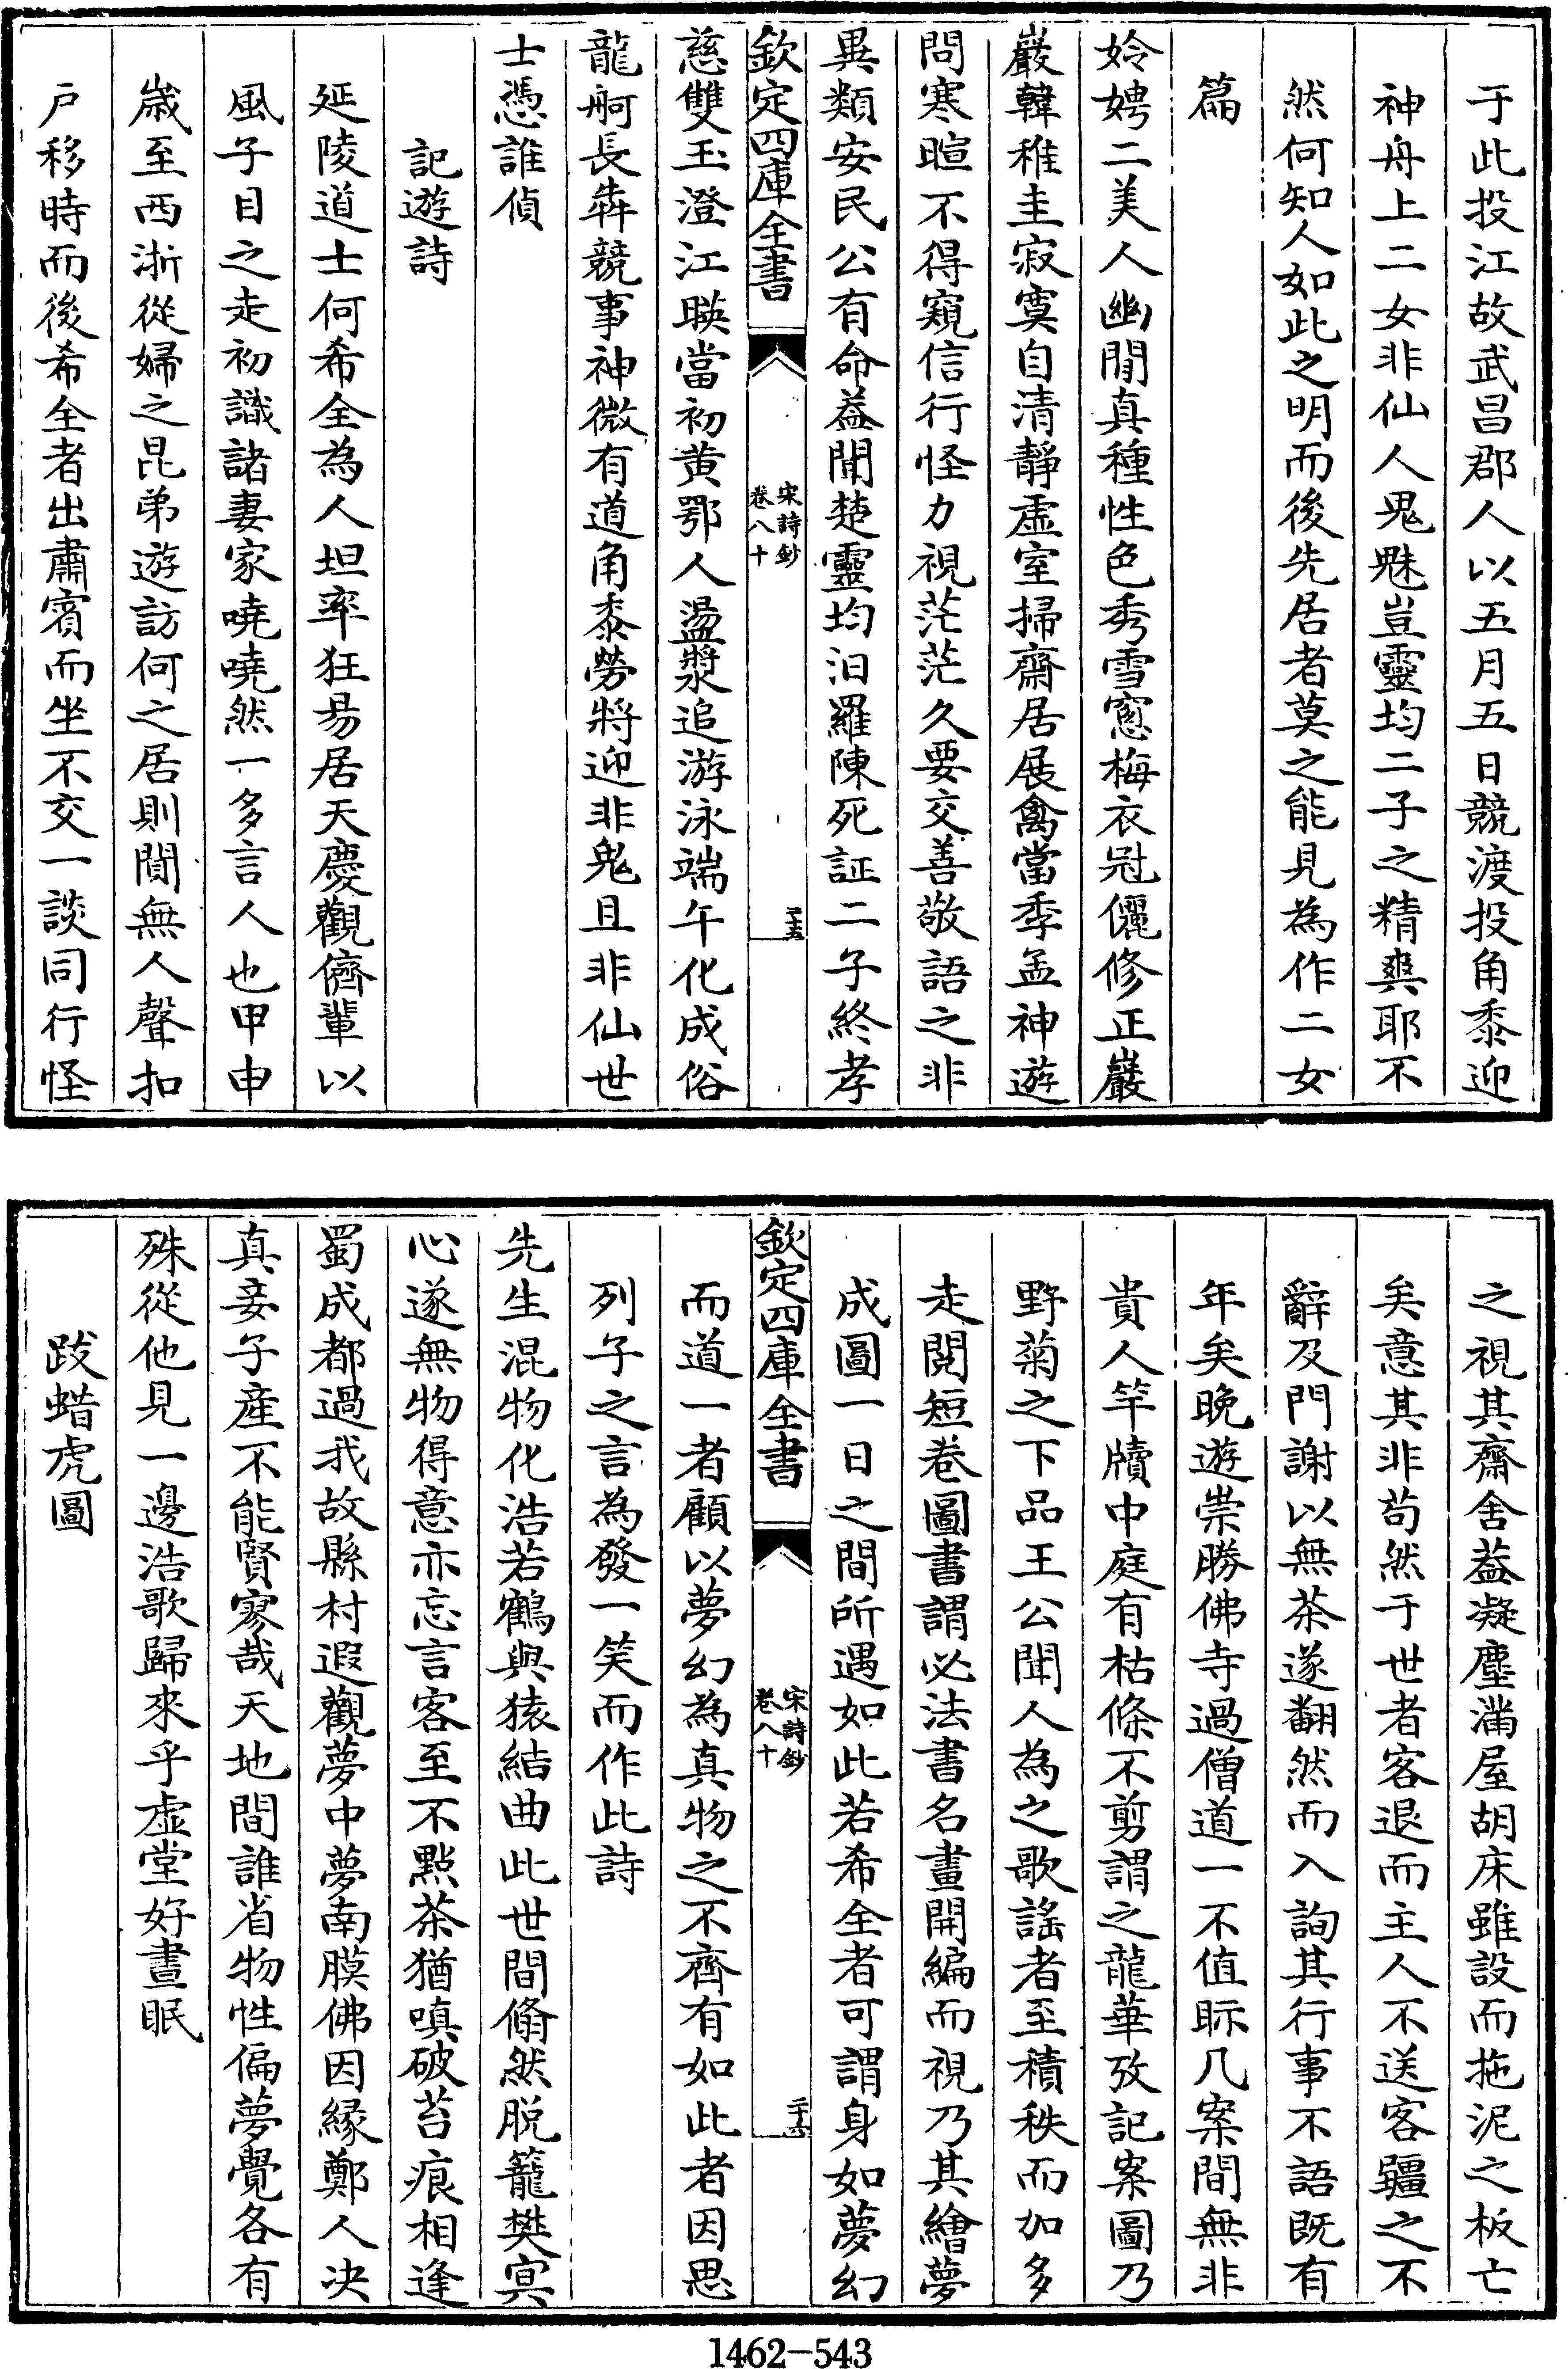 于此投江故武昌郡人以五月五日競渡投角黍迎
神舟上二女非仙人鬼魅豈靈均二子之精爽耶不
然何知人如此之明而後先居者莫之能見為作二女
篇
姈娉二美人幽閒真種性色秀雪窓梅衣冠儷修正巖
巖韓稚圭寂寞自清靜虛室掃齋居展禽當季孟神遊
問寒暄不得窺信行怪力視茫茫久要交善敬語之非
異類安民公有命益聞楚靈均汨羅陳死証二子終孝
欽定四庫全書
宋詩鈔
卷八十
二十五
慈雙玉澄江暎當初黄鄂人盪漿追游泳端午化成俗
龍舸長犇競事神微有道角黍勞將迎非鬼且非仙世
士憑誰偵
記遊詩
延陵道士何希全為人坦率狂易居天慶觀儕輩以
風子目之走初識諸妻家嘵嘵然一多言人也甲申
嵗至西浙從婦之昆弟遊訪何之居則閴無人聲扣
户移時而後希全者出肅賓而坐不交一談同行怪
之視其齋舍葢凝塵滿屋胡床雖設而拖泥之板亡
矣意其非苟然于世者客退而主人不送客疆之不
辭及門謝以無茶遂翻然而入詢其行事不語既有
年矣晩遊崇勝佛寺過僧道一不值眎几案間無非
貴人竿牘中庭有枯條不剪謂之龍華攷記案圖乃
野菊之下品王公聞人為之歌謠者至積秩而加多
走閱短卷圖書謂必法書名畫開編而視乃其繪夢
成圖一日之間所遇如此若希全者可謂身如夢幻
欽定四庫全書
宋詩鈔
卷八十
二十六
而道一者顧以夢幻為真物之不齊有如此者因思
列子之言為發一笑而作此詩
先生混物化浩若鶴與猿結曲此世間翛然脱籠樊寘
心遂無物得意亦忘言客至不點茶猶嗔破苔痕相逢
蜀成都過我故縣村遐觀夢中夢南膜佛因緣鄭人决
真妄子産不能賢寥哉天地間誰省物性偏夢覺各有
殊從他見一邊浩歌歸來乎虛堂好晝眠
跋蜡虎圖
1462-543